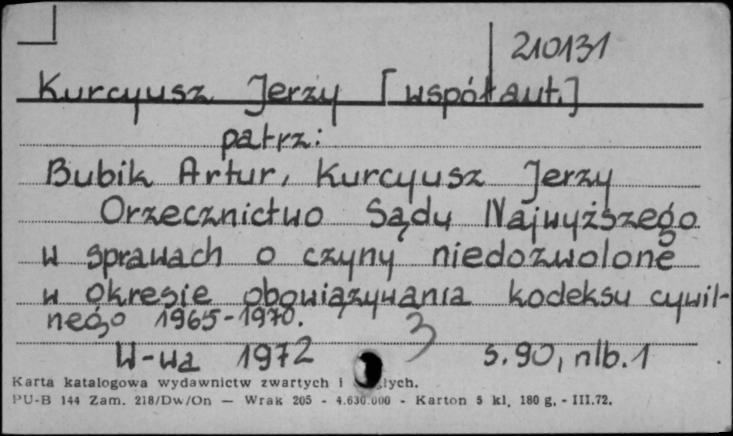 210131
Kurcyusz Jerzy [współaut.]
patrz:
Bubik Artur, Kurcyusz Jerzy
Orzecznictwo Sądu Najwyższego
w sprawach o czyny niedozwolone
w okresie obowiązywania kodeksu cywil-
nego 1965-1970.
3
W-wa 1972 s. 90, nlb. 1
Karta katalogowa wydawnictw zwartych i
PU-B 144 Zam. 218/Dw/On — Wrak 205 - 4.630.000 - Karton 5 kl. 180 g. - III.72.